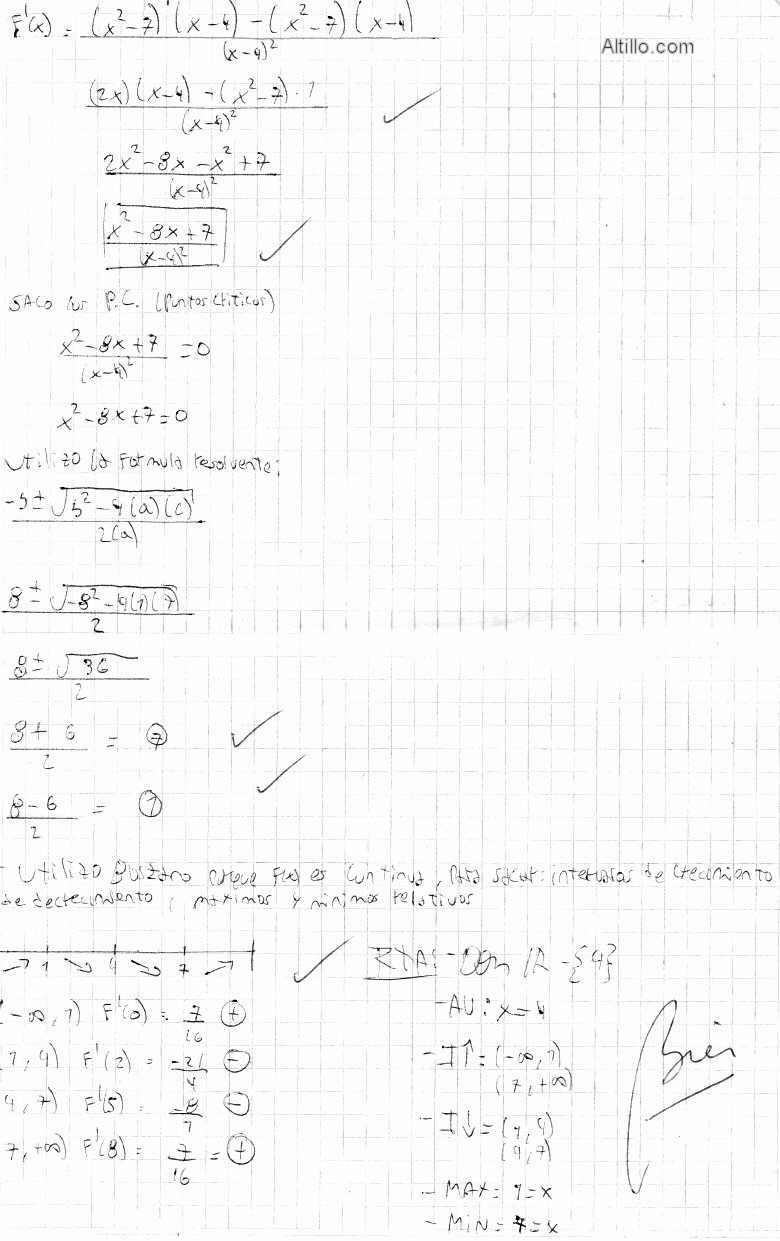 Altillo.com
F'(x) = (x²-7)'(x-4) - (x²-7)(x-4)'
(x-4)²
(2x)(x-4) - (x²-7)·1
(x-4)²
2x²-8x-x²+7
(x-4)²
x²-8x+7
(x-4)²
SACO los P.C. (Puntos Criticos)
x²-8x+7 = 0
(x-4)²
x²-8x+7=0
Utilizo la Formula resolvente:
-b ± √b²-4(a)(c)
2(a)
8 ± √-8²-4(1)(7)
2
8 ± √36
2
8+6 = 7
2
8-6 = 1
2
- Utilizo Bolzano porque F(x) es Continua, Para sacar: intervalos de crecimiento
de decrecimiento, maximos y minimos relativos
1 4 7
RTA: -Dom IR -{4}
-AV: x=4
(-∞,1) F'(0) = 7/16 +
1,4) F'(2) = -21/4 -
4,7) F'(5) = -8/1 -
7,+∞) F'(8) = 7/16 = +
-I↑=(-∞,1)
(7,+∞)
-I↓=(1,4)
(4,7)
-MAX= 1=x
-MIN= 7=x
Bien